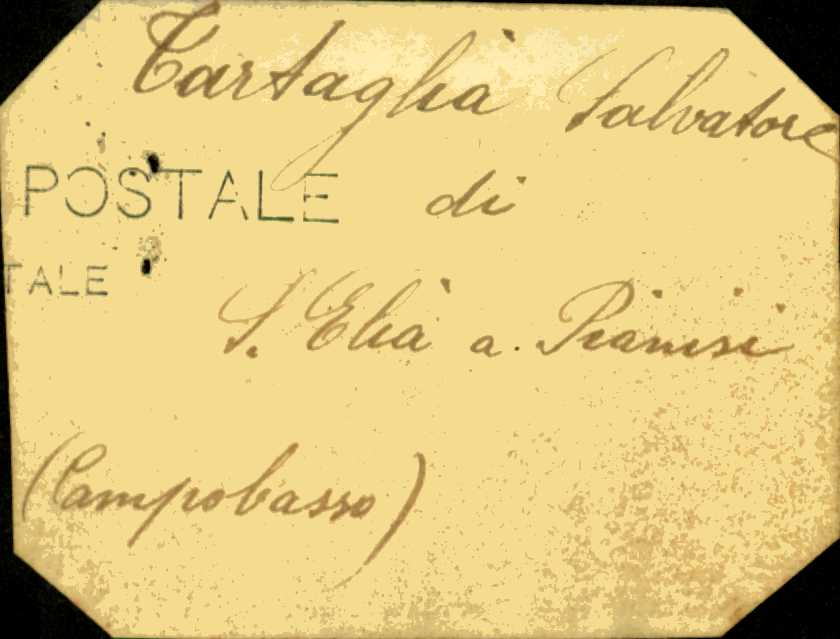 Tartaglia Salvatore
POSTALE
di
TALE
S. Elia a. Pianisi
(Campobasso)